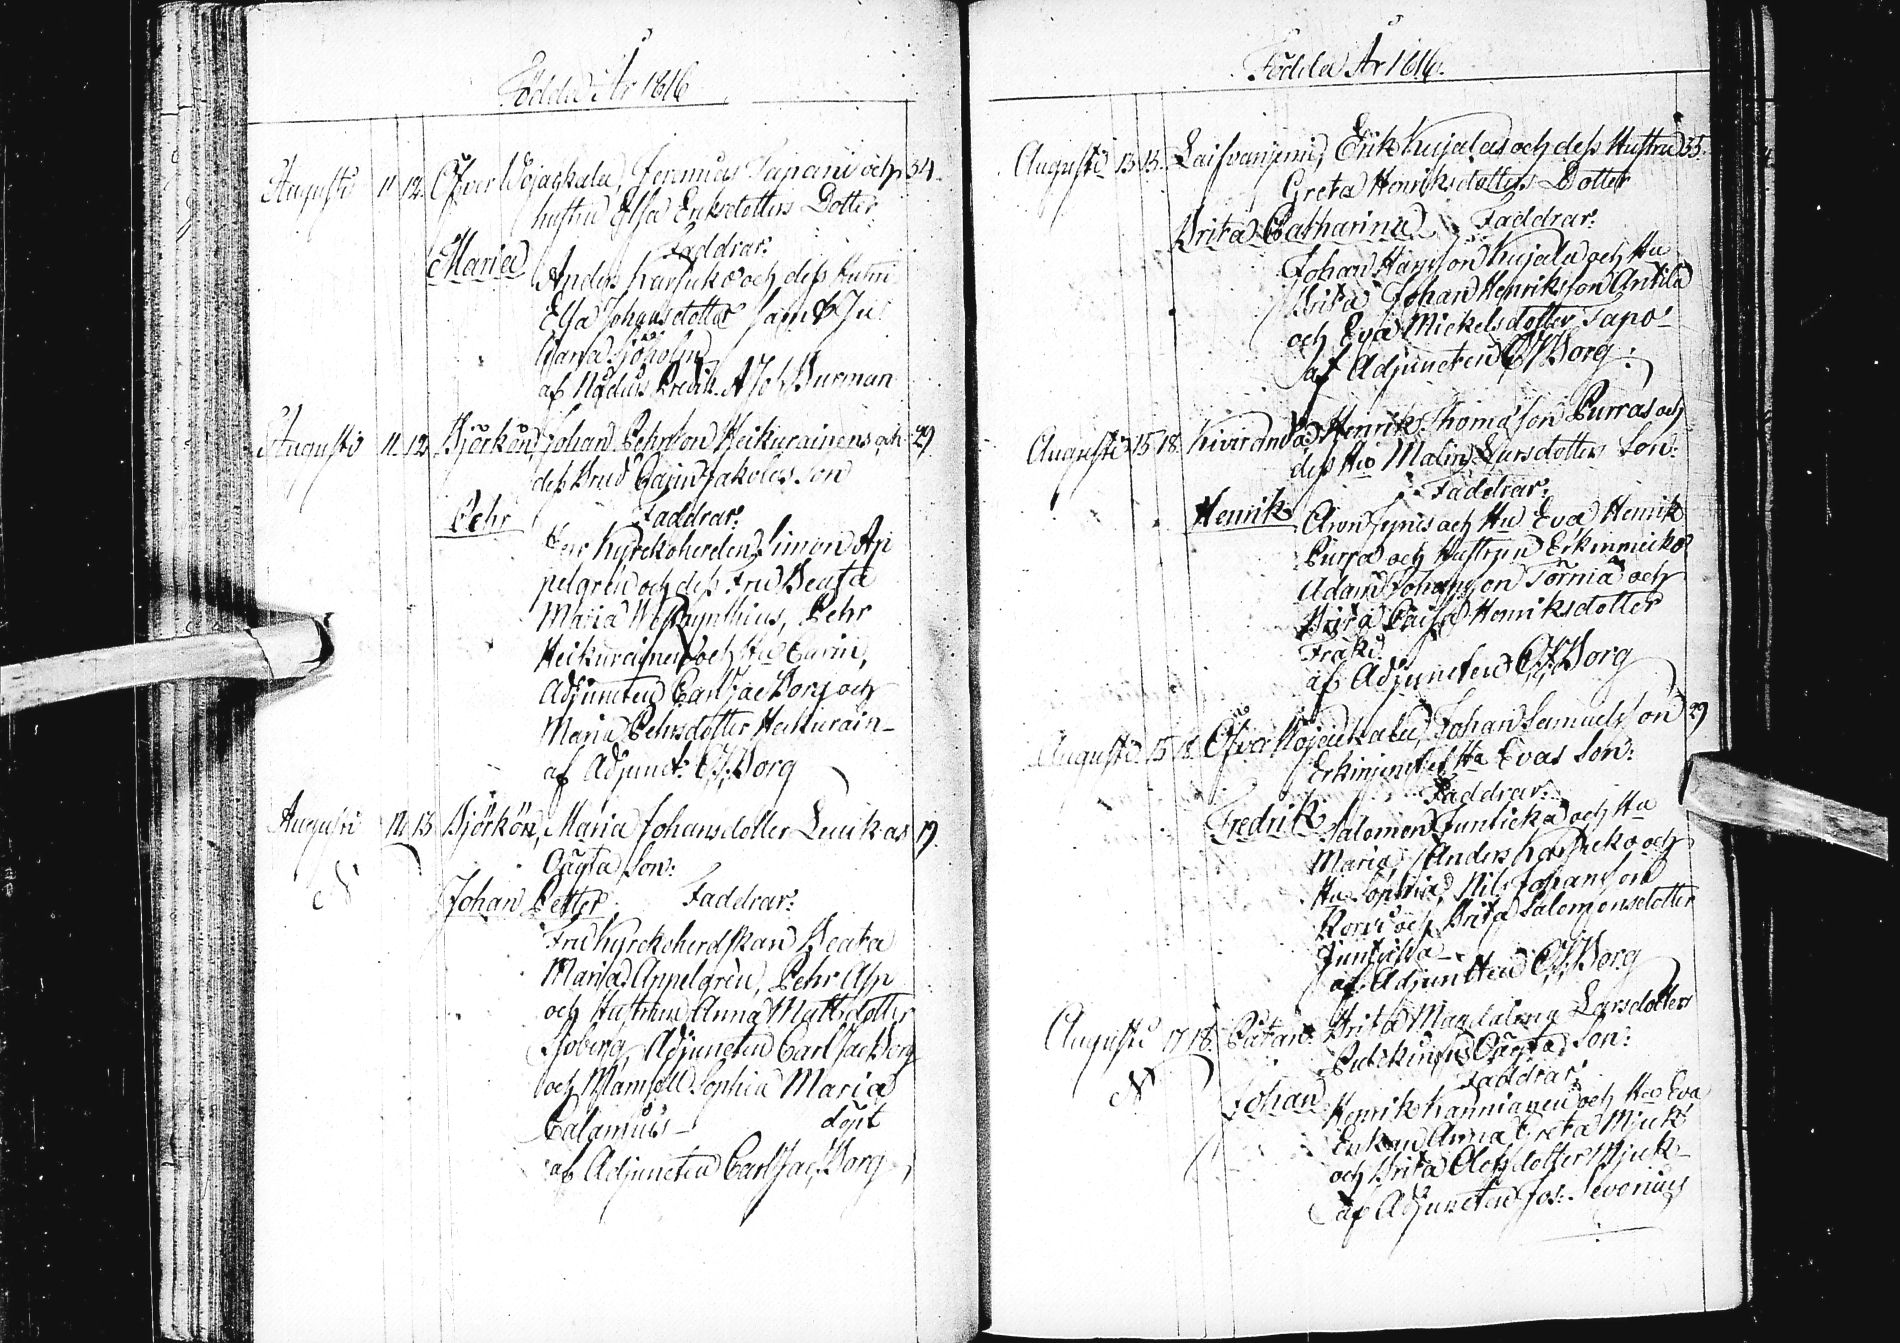 Födde År 1816
Augusti 11 12 Öfver Wojackala, Hermans Tapani och 34
hustru Elsa Eriksdotters Dotter
Faddrar:
Maria Anders Karsuko och dess hustru
Elsa Johansdotter samt Ju
liana Sjöholm
af Nådårs Predik. A Joh Burman
Augusti 11 12 Björkön, Johan Pehrson Heikurainens och 29
dess Brud Cajin Jakobs Son
Pehr Faddrar:
Herr Kyrckoherden Simon Ap
pelgren och dess Fru Beata
Maria Westzynthius, Pehr
Heikurainen och Hu Carin,
Adjuncten Carl Jac Borg och
Maria Pehrsdotter Heikurain
af Adjunct: C J Borg
Augusti 12 13 Björkön, Maria Johansdotter Luukas 19
Oägta Son:
Johan Petter Faddrar:
Fru Kyrckoherdskan Beata
Maria Appelgren, Pehr Asp
och Hustrun Anna Mattsdotter
Sjöberg, Adjuncten Carl Jac Borg
och Mamsell Sophia Maria
Calamnius döpt
af Adjuncten Carl Jac Borg
Födde År 1816.
Augusti 13 15 Laifvanjemi, Erik Kujalas och dess Hustru 35.
Greta Henriksdotters Dotter
Brita Catharina Faddrar:
Johan Hansson Kujala och Hu
Brita Johan Henriksson Antila
och Eva Mickelsdotter Tapo
af Adjuncten C J Borg
Augusti 15 18 Kiviranda, Henrik Thomason Purras och
dess Hu Malin Larsdotters Son:
Faddrar:
Henrik Aron och Hu Eva Henrik
Purra och Hustrun
Adam Johansson Törmä och
Brita Caisa Henriksdotter
Fraki
af Adjuncten C J Borg
Augusti 15 18 Öfver Wojackala, Johan Samuelsson 29
Erkinjens och Hu Evas Son:
Faddrar:
Fredrik Salomon Junticka och Hu
Maria, Anders Karsuko och
Hu Sophia, Nils Johansson
Korvi och Brita Salomonsdotter
Juntikka
af Adjuncten C J Borg
Augusti 17 18 Brita Magdalena Larsdotters
Oägta Son:
Faddrar:
Johan Henrik Kannianen och Hu Eva
Enkan Anna Greta Mjuk
och Brita Olofsdotter Mjuk
af Adjuncten Jos: Severius